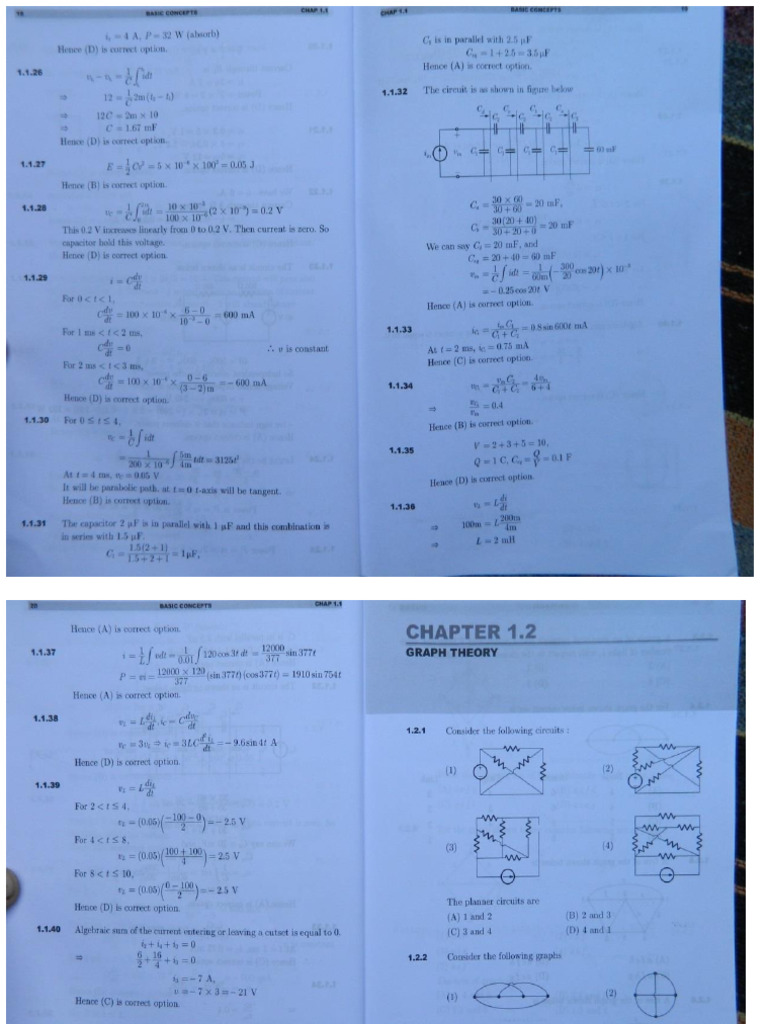 18 BASIC CONCEPTS CHAP 1.1
i_s = 4 A, P = 32 W (absorb)
Hence (D) is correct option.
1.1.26
⇒ 12 = 1/C 2m(t₂ − t₁)
⇒ 12C = 2m × 10
⇒ C = 1.67 mF
Hence (D) is correct option.
1.1.27 E = 1/2 Cv² = 5 × 10⁻⁶ × 100² = 0.05 J
Hence (B) is correct option.
1.1.28 v_C = 1/C ∫ idt = 10 × 10⁻³/100 × 10⁻⁶ (2 × 10⁻³) = 0.2 V
This 0.2 V increases linearly from 0 to 0.2 V. Then current is zero. So
capacitor hold this voltage.
Hence (D) is correct option.
1.1.29 i = C dv/dt
For 0 < t < 1,
C dv/dt = 100 × 10⁻⁶ × 6 − 0/10⁻³ − 0 = 600 mA
For 1 ms < t < 2 ms,
C dv/dt = 0 ∴ v is constant
For 2 ms < t < 3 ms,
C dv/dt = 100 × 10⁻⁶ × 0 − 6/(3 − 2)m = − 600 mA
Hence (D) is correct option.
1.1.30 For 0 ≤ t ≤ 4,
v_C = 1/C ∫ idt
= 1/200 × 10⁻⁶ ∫ 5m/4m tdt = 3125t²
At t = 4 ms, v_C = 0.05 V
It will be parabolic path. at t = 0 t-axis will be tangent.
Hence (B) is correct option.
1.1.31 The capacitor 2 μF is in parallel with 1 μF and this combination is
in series with 1.5 μF.
C₁ = 1.5(2 + 1)/1.5 + 2 + 1 = 1 μF,
CHAP 1.1 BASIC CONCEPTS 19
C₁ is in parallel with 2.5 μF
C_eq = 1 + 2.5 = 3.5 μF
Hence (A) is correct option.
1.1.32 The circuit is as shown in figure below
60 mF
= 30 × 60/30 + 60 = 20 mF,
= 30(20 + 40)/30 + 20 + 40 = 20 mF
We can say C₁ = 20 mF, and
C_eq = 20 + 40 = 60 mF
v_in = 1/C ∫ idt = 1/60m (− 300/20 cos 20t) × 10⁻³
= − 0.25 cos 20t V
Hence (A) is correct option.
1.1.33 = 0.8 sin 600t mA
At t = 2 ms, = 0.75 mA
Hence (C) is correct option.
1.1.34 = 4v_in/6 + 4
⇒ = 0.4
Hence (B) is correct option.
1.1.35 V = 2 + 3 + 5 = 10,
Q = 1 C, C_eq = Q/V = 0.1 F
Hence (D) is correct option.
1.1.36 v_L = L di/dt
⇒ 100m = L 200m/4m
⇒ L = 2 mH
20 BASIC CONCEPTS CHAP 1.1
Hence (A) is correct option.
1.1.37 i = 1/L ∫ vdt = 1/0.01 ∫ 120 cos 3t dt = 12000/377 sin 377t
P = vi = 12000 × 120/377 (sin 377t)(cos 377t) = 1910 sin 754t
Hence (A) is correct option.
1.1.38 v_L = L di_L/dt, i_C = C dv_C/dt
v_C = 3v_L ⇒ i_C = 3LC d²i_L/dt = − 9.6 sin 4t A
Hence (D) is correct option.
1.1.39 v_L = L di_L/dt
For 2 < t ≤ 4,
v_L = (0.05)(−100 − 0/2) = − 2.5 V
For 4 < t ≤ 8,
v_L = (0.05)(100 + 100/4) = 2.5 V
For 8 < t ≤ 10,
v_L = (0.05)(0 − 100/2) = − 2.5 V
Hence (D) is correct option.
1.1.40 Algebraic sum of the current entering or leaving a cutset is equal to 0.
i₂ + i₄ + i₃ = 0
⇒ 6/2 + 16/4 + i₃ = 0
i₃ = − 7 A,
v = − 7 × 3 = − 21 V
Hence (C) is correct option.
CHAPTER 1.2
GRAPH THEORY
1.2.1 Consider the following circuits :
(1) (2)
(3) (4)
The planner circuits are
(A) 1 and 2 (B) 2 and 3
(C) 3 and 4 (D) 4 and 1
1.2.2 Consider the following graphs
(1) (2)